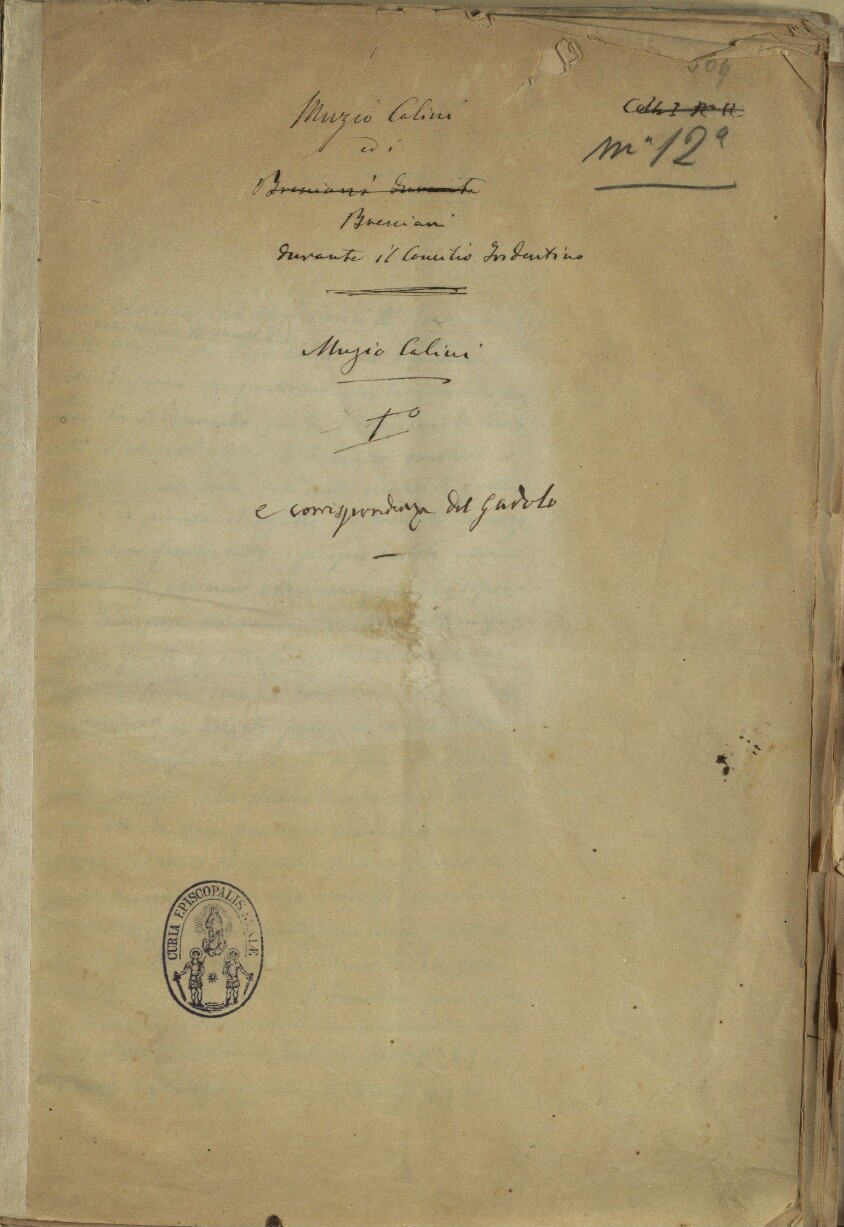 12
509
Muzio Calini
ed i
Bresciani durante
Bresciani
durante il Concilio Tridentino
Muzio Calini
1º
e corrispondenza del Gadolo
mº 12ª
CURIA EPISCOPALIS